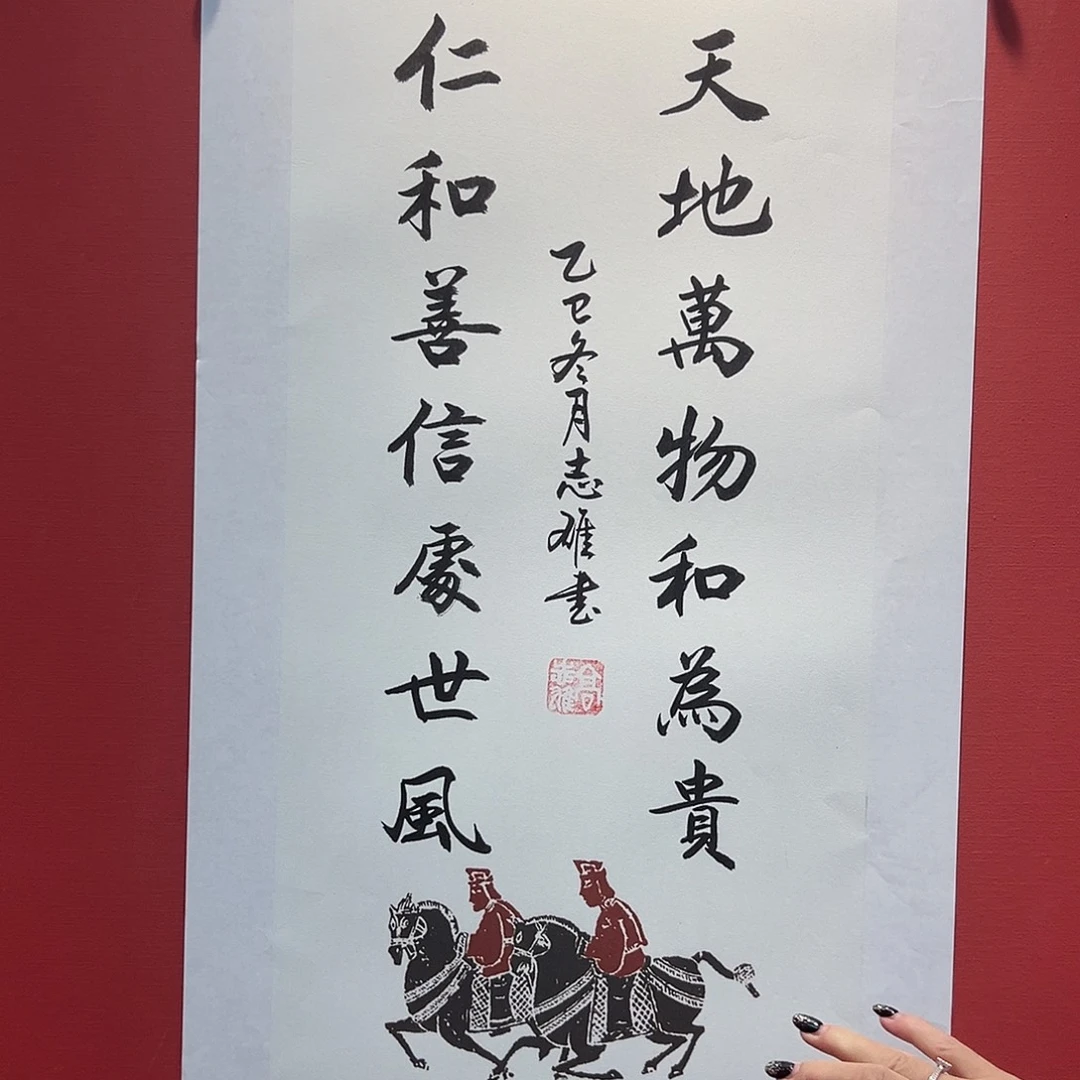 天地萬物和為貴
仁和善信處世風
乙巳冬月志雄書